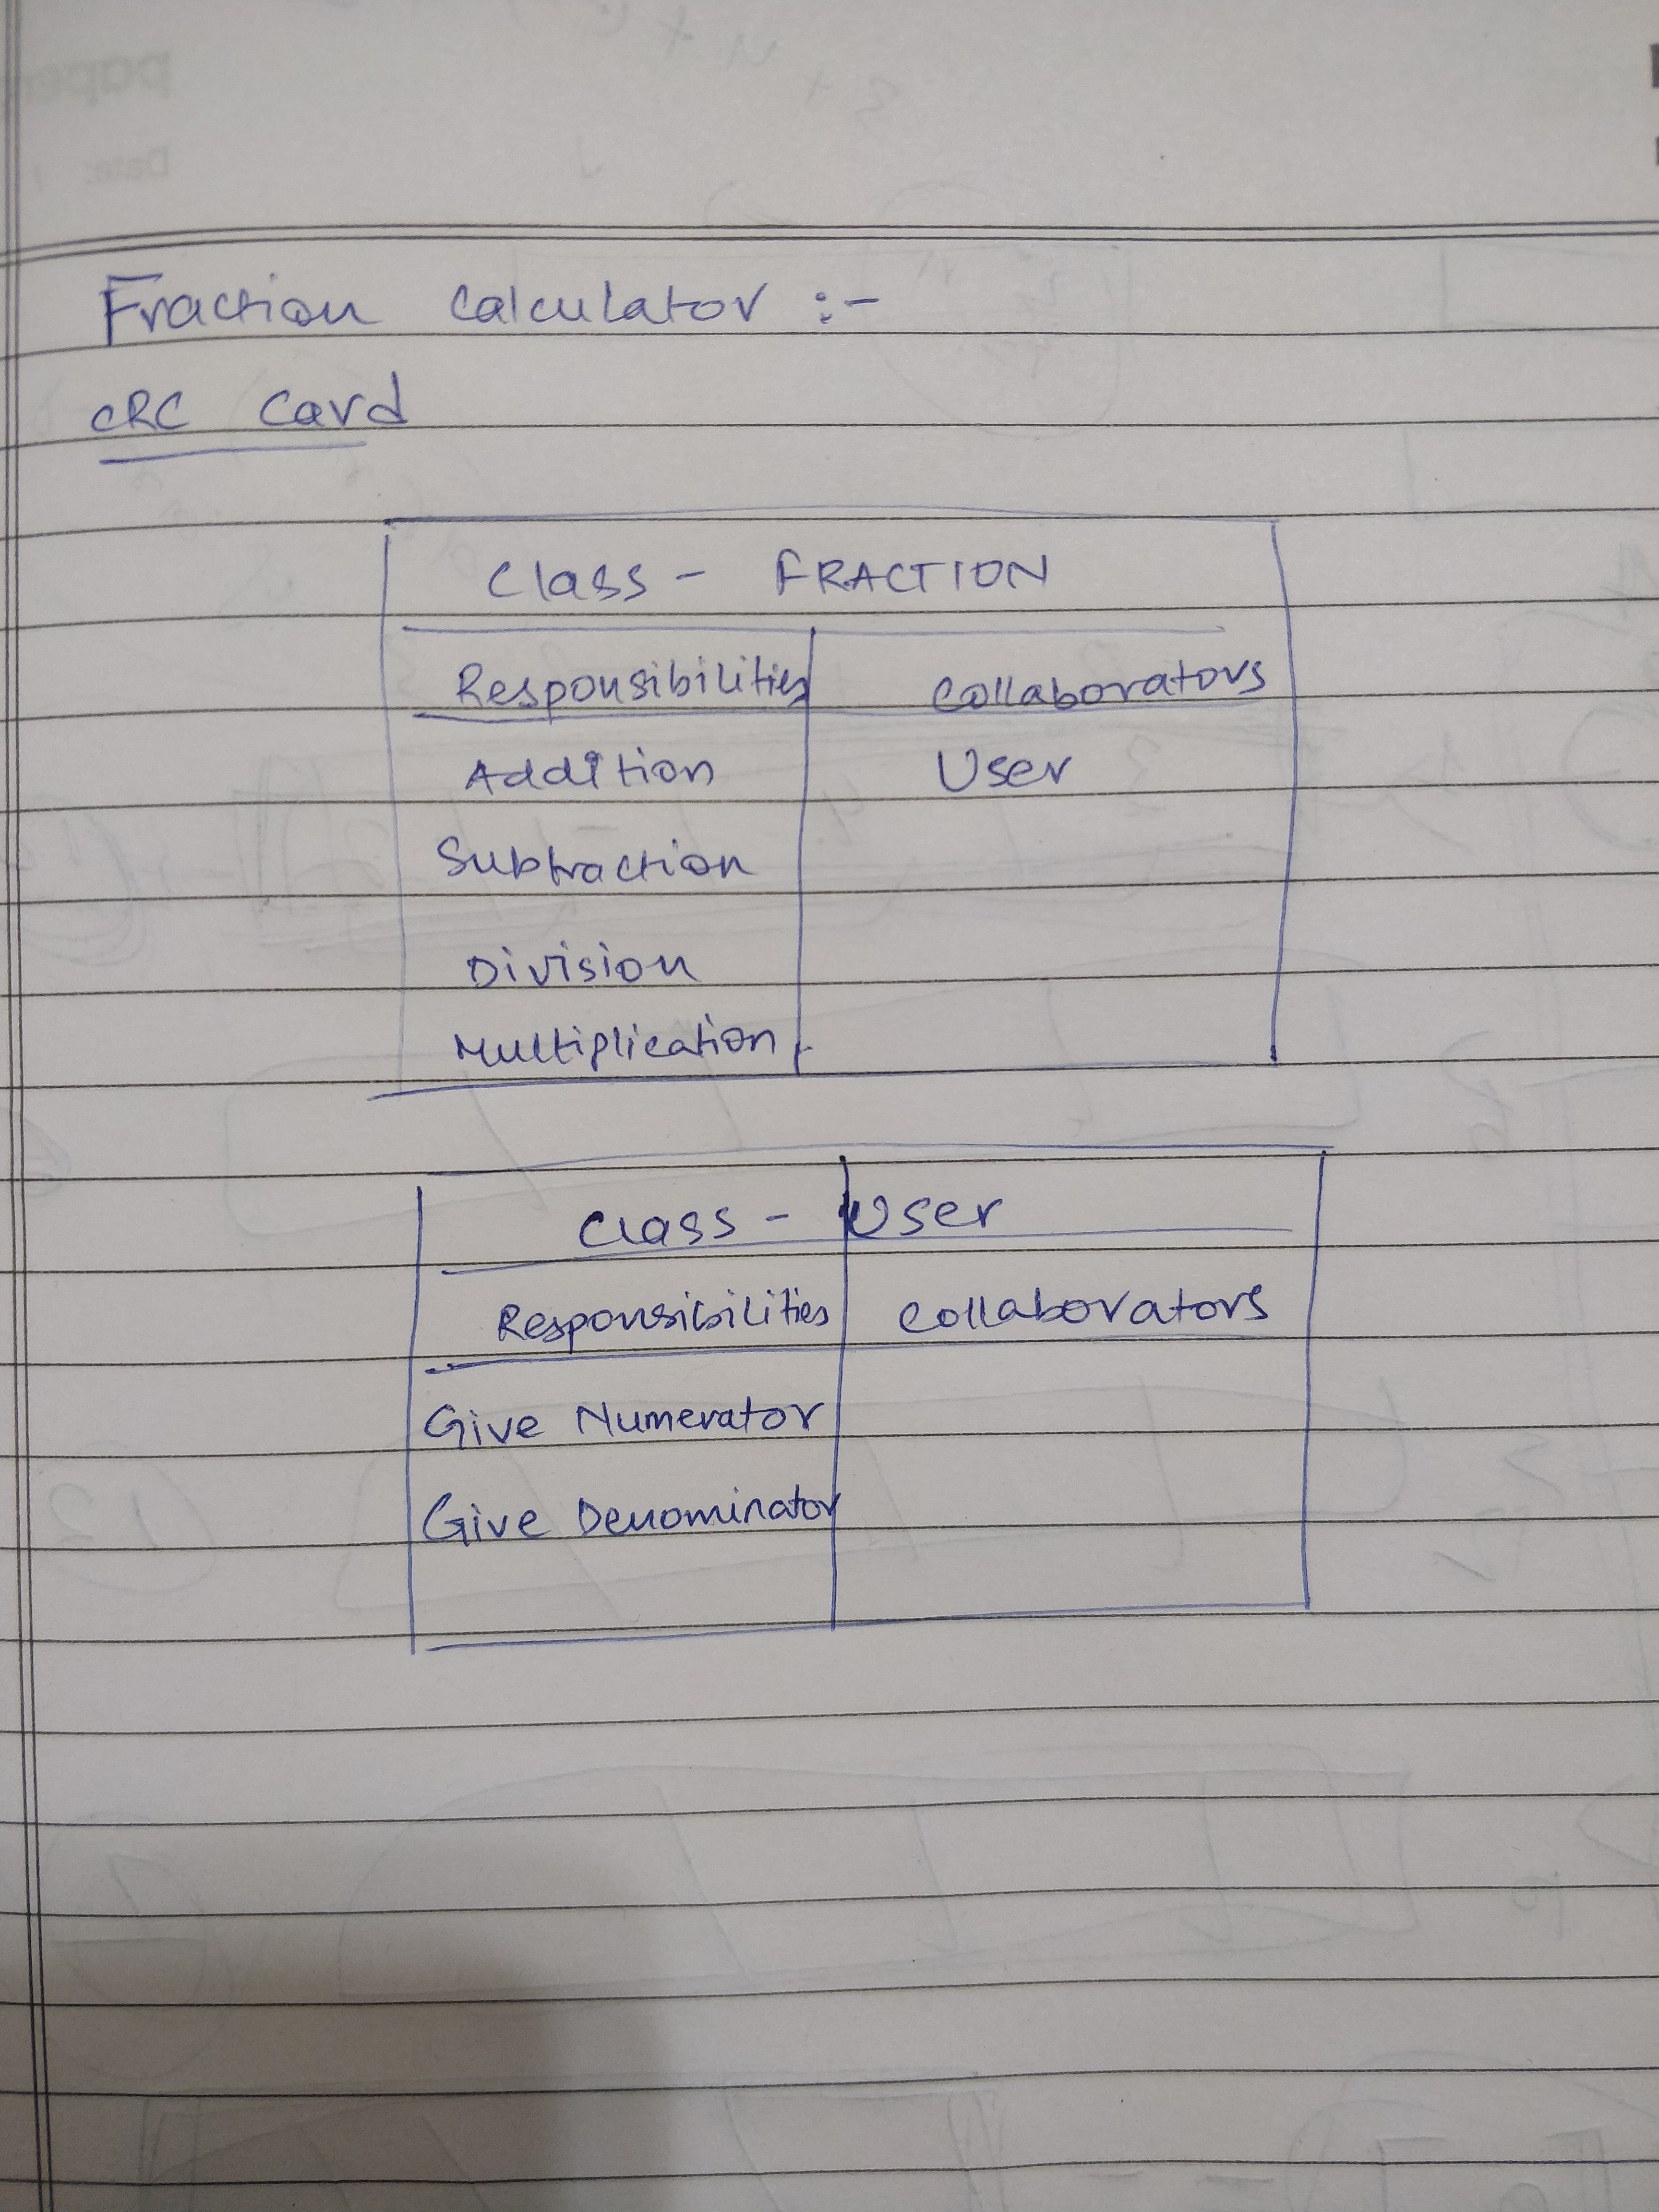 Fraction Calculator :-
CRC Card
Class - FRACTION
Responsibilities Collaborators
Addition User
Subtraction
Division
Multiplication
Class - User
Responsibilities Collaborators
Give Numerator
Give Denominator